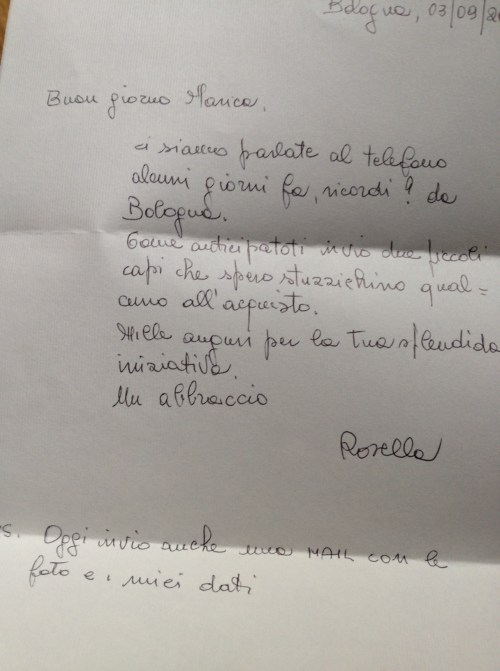 Bologna, 03/09/20
Buon giorno Marica,
ci siamo parlate al telefono
alcuni giorni fa, ricordi? da
Bologna.
Come anticipatoti invio due piccoli
capi che spero stuzzichino qual=
cuno all'acquisto.
Mille auguri per la tua splendida
iniziativa.
Un abbraccio
Rosella
s. Oggi invio anche una MAIL con le
foto e i miei dati